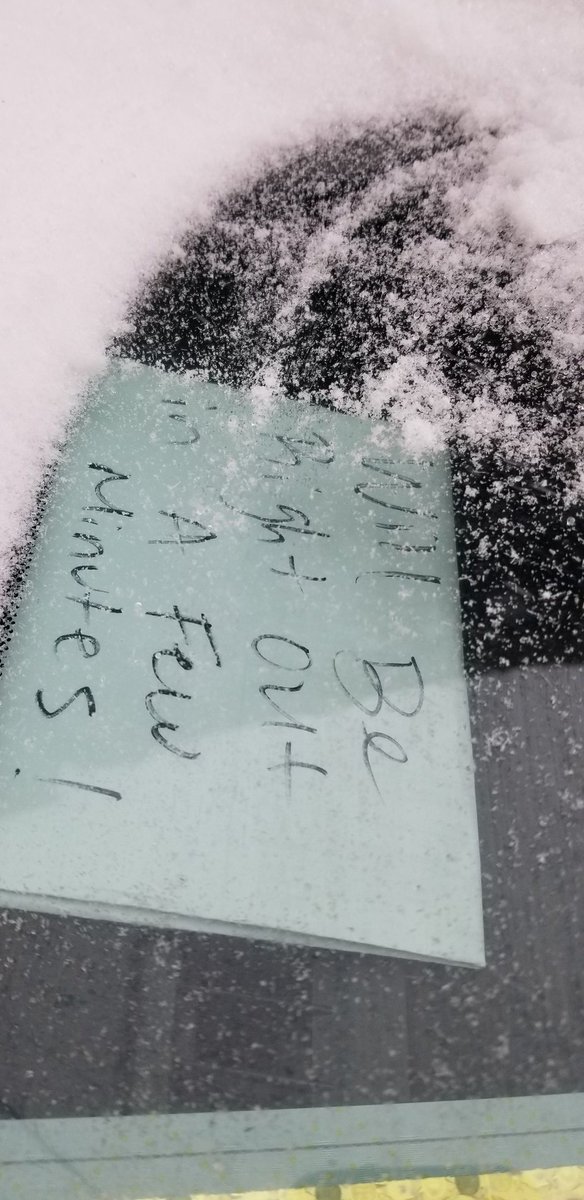 Will Be
Right Out
in A Few
Minutes!